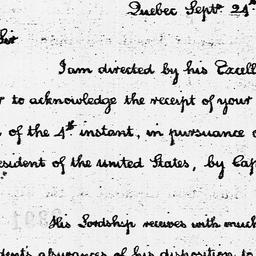 Quebec Septr 24th
Sir
I am directed by his Excell
to acknowledge the receipt of your
of the 4th instant, in pursuance
esident of the United States, by Cap
His Lordship receives with much
dent's assurances of his disposition to